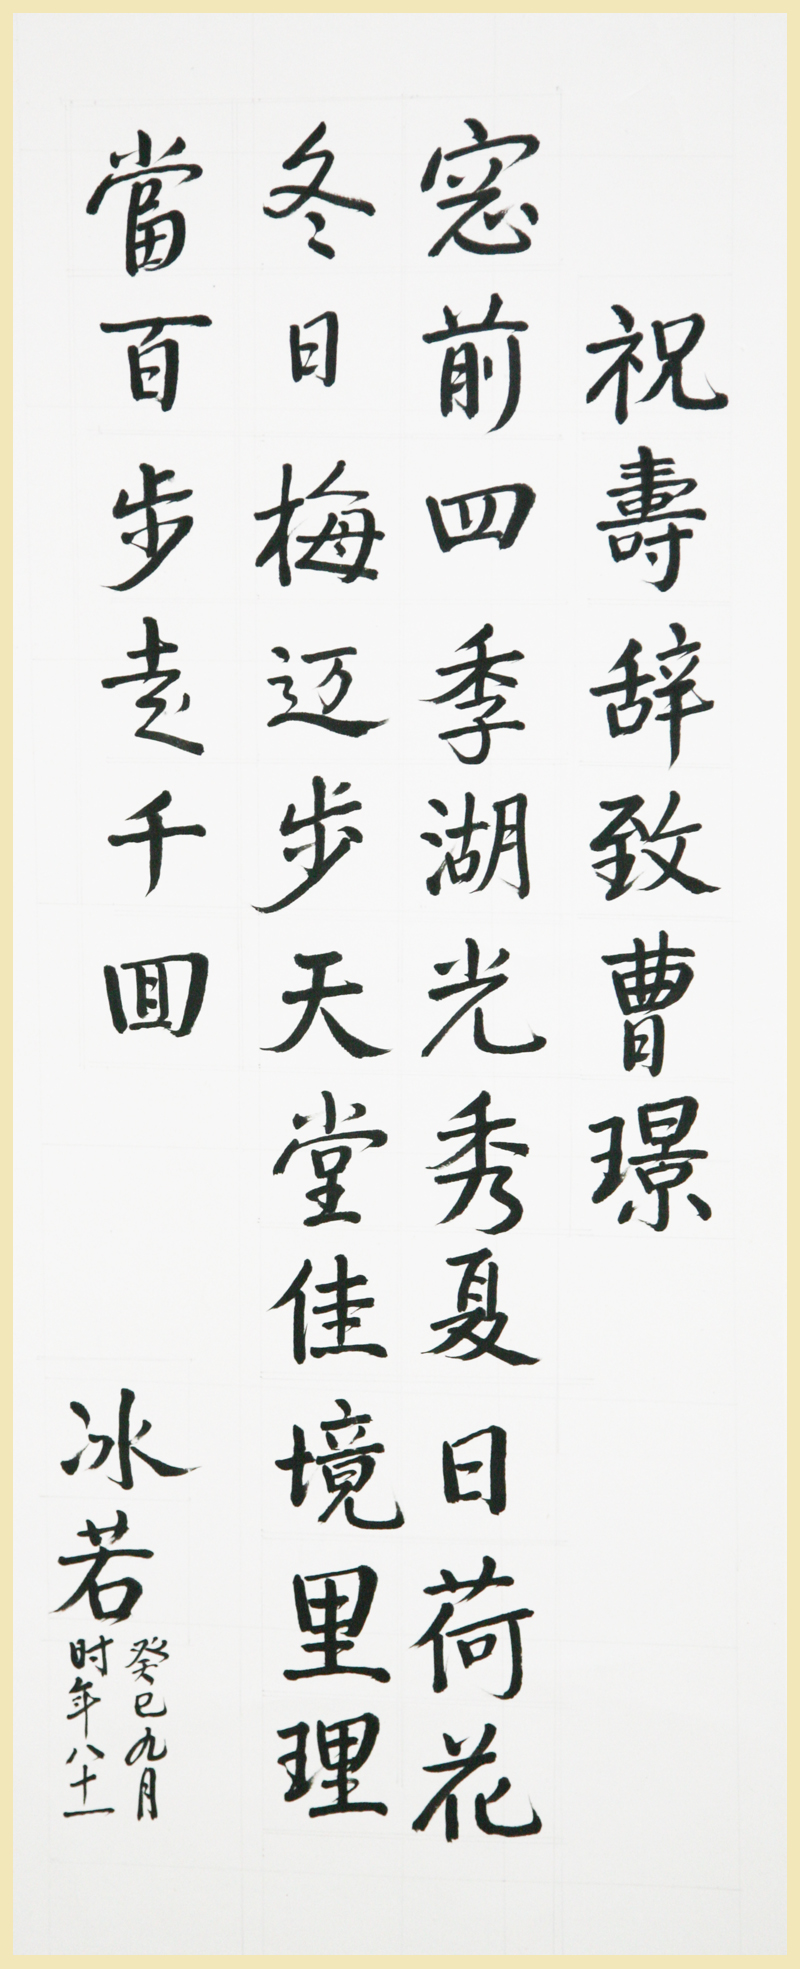 祝壽辞致曹璟
窓前四季湖光秀夏日荷花
冬日梅迈步天堂佳境里理
當百步走千回
冰若
癸巳九月
时年八十一